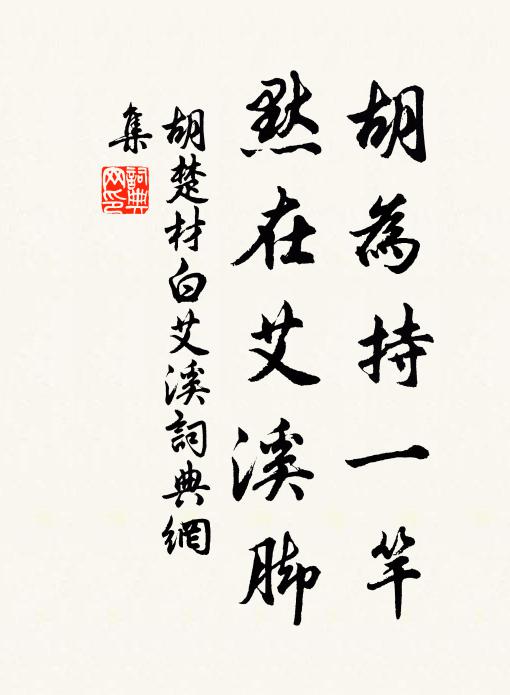 胡為持一竿
黙在艾溪脚
胡楚材白艾溪詞典網
集
詞典
网印